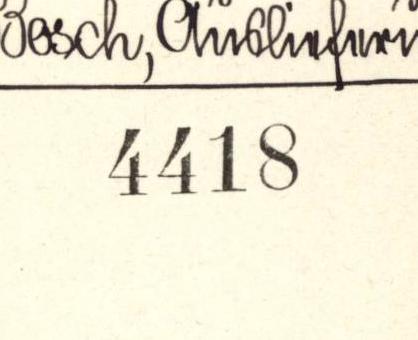 Bosch, Ausliefer
4418